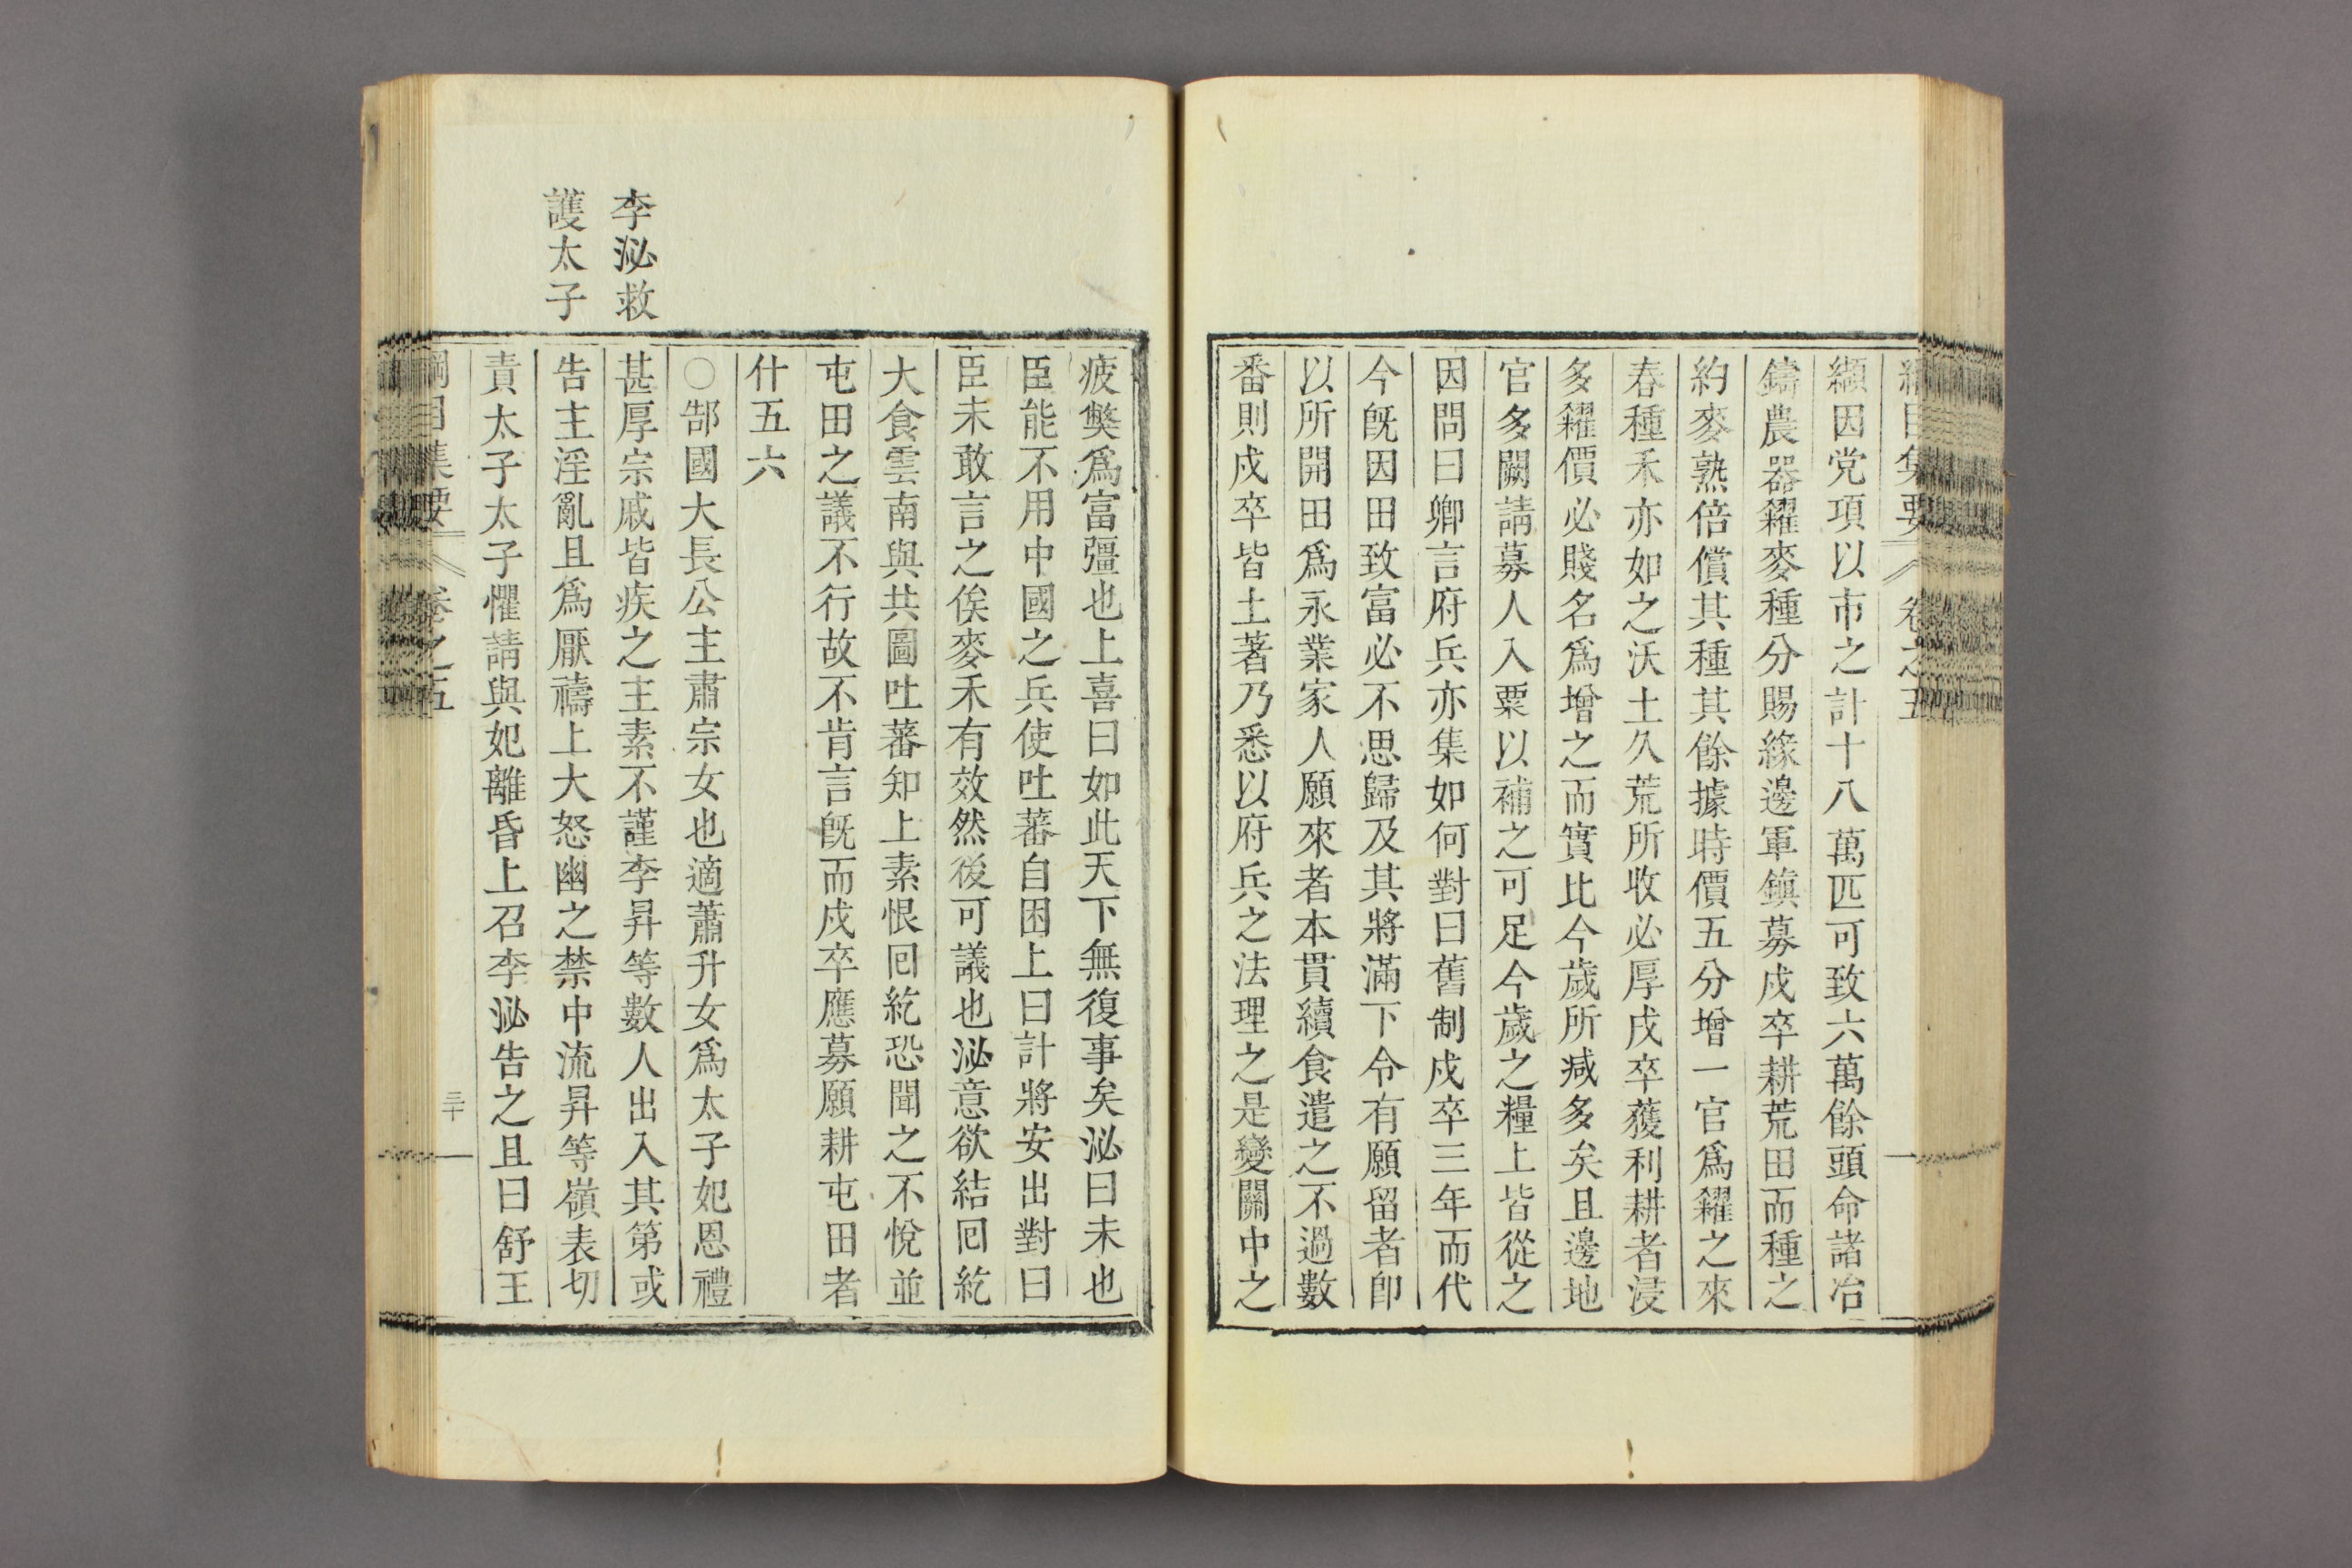 綱目集要 卷之五
纈因党項以市之計十八萬匹可致六萬餘頭命諸冶
鑄農器糴麥種分賜緣邊軍鎮募戍卒耕荒田而種之
約麥熟倍償其種其餘據時價五分增一官爲糴之來
春種禾亦如之沃土久荒所收必厚戍卒獲利耕者浸
多糴價必賤名爲增之而實比今歲所减多矣且邊地
官多闕請募人入粟以補之可足今歲之糧上皆從之
因問曰卿言府兵亦集如何對曰舊制戍卒三年而代
今旣因田致富必不思歸及其將滿下令有願留者卽
以所開田爲永業家人願來者本貫續食遣之不過數
番則戍卒皆土著乃悉以府兵之法理之是變關中之
疲獘爲富彊也上喜曰如此天下無復事矣泌曰未也
臣能不用中國之兵使吐蕃自困上曰計將安出對曰
臣未敢言之俟麥禾有效然後可議也泌意欲結囘紇
大食雲南與共圖吐蕃知上素恨囘紇恐聞之不悅並
屯田之議不行故不肯言旣而戍卒應募願耕屯田者
什五六
李泌救
護太子
○郜國大長公主肅宗女也適蕭升女爲太子妃恩禮
甚厚宗戚皆疾之主素不謹李昇等數人出入其第或
告主淫亂且爲厭禱上大怒幽之禁中流昇等嶺表切
責太子太子懼請與妃離昏上召李泌告之且曰舒王
綱目集要 卷之五 三十一